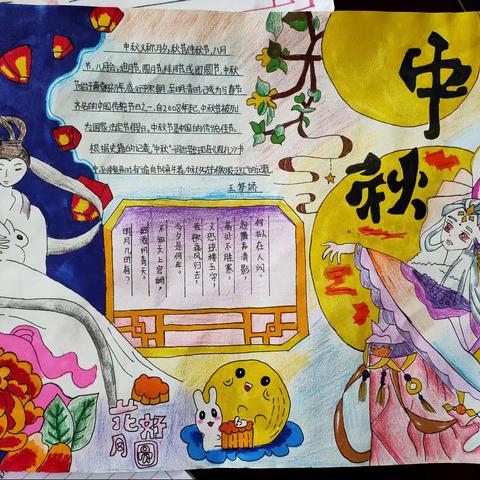 中秋又称月夕,秋节,仲秋节,八月
节,八月会,追月节,玩月节,拜月节或团圆节,中秋
节始于唐朝初年,盛行于宋朝,至明清时,已成为与春节
齐名的中国传统节日之一,自2008年起,中秋节被列
为国家法定节假日,中秋节是中国的传统佳节,
根据史籍的记载,"中秋"一词最早出现在《周礼》一书
中秋
明月几时有?
把酒问青天。
不知天上宫阙,
今夕是何年。
我欲乘风归去,
又恐琼楼玉宇,
高处不胜寒。
起舞弄清影,
何似在人间。
花好月圆